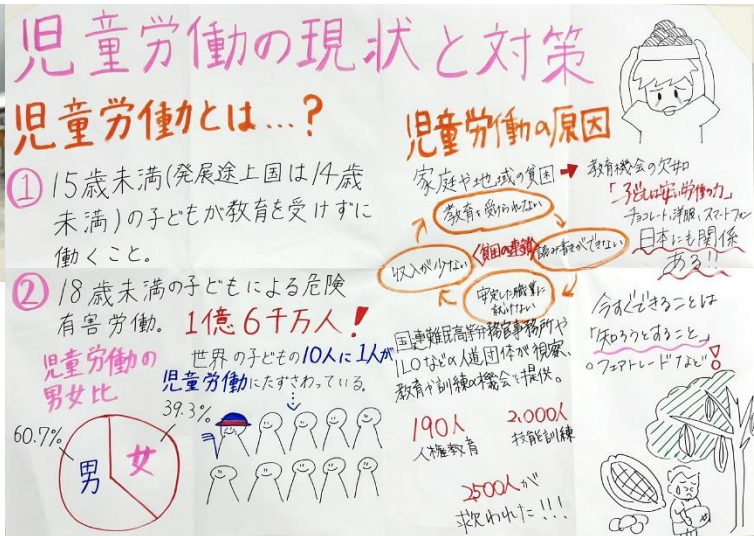 児童労働の現状と対策
児童労働とは…?
① 15歳未満(発展途上国は14歳
未満)の子どもが教育を受けずに
働くこと。
② 18歳未満の子どもによる危険
有害労働。 1億6千万人!
世界の子どもの10人に1人が
児童労働にたずさわっている。
児童労働の
男女比
60.7%
39.3%
男
女
児童労働の原因
家庭や地域の貧困 → 教育機会の欠如
「子どもは安い労働力」
チョコレート、洋服、スマートフォン
日本にも関係
ある!!
教育を受けられない
収入が少ない
〈貧困の連鎖〉
読み書きができない
安定した職業に
就けない
国連難民高等弁務官事務所や
ILOなどの人道団体が視察、
教育や訓練の機会を提供。
190人
人権教育
2,000人
技能訓練
2500人が
救われた!!!
今すぐできることは
「知ろうとすること」
◦フェアトレードなど!